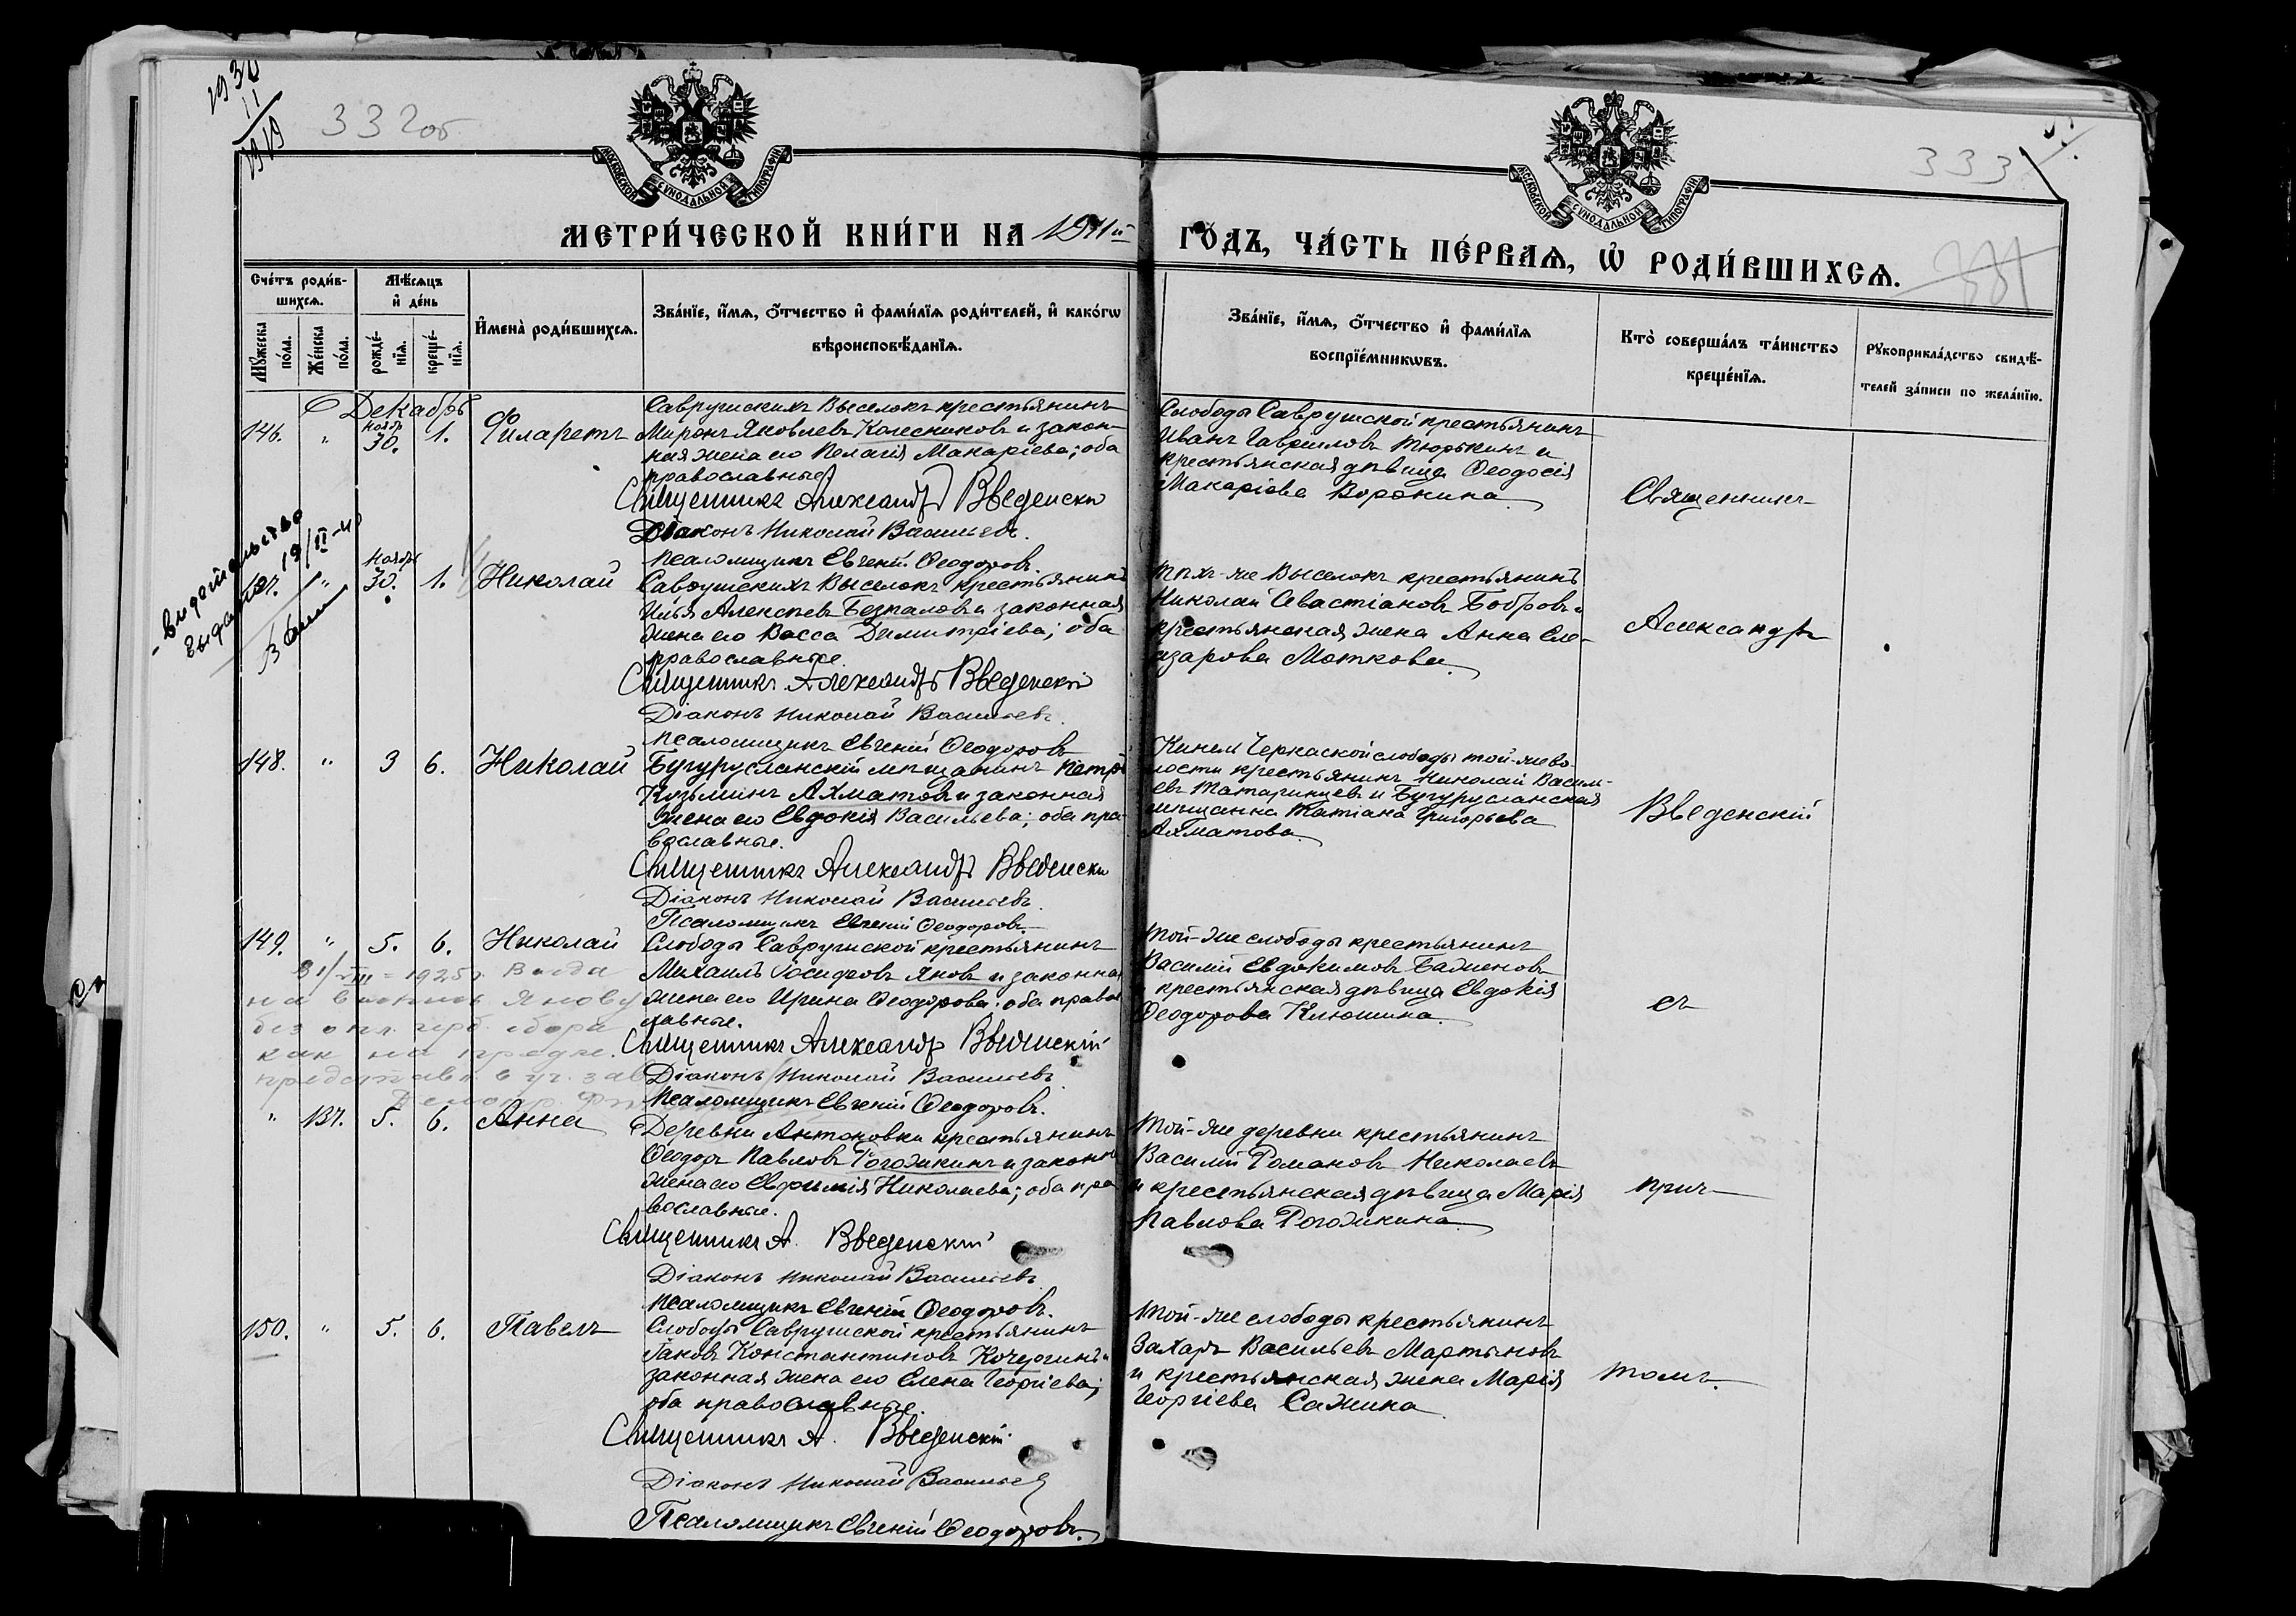 332об
333
МОСКОВСКОЙ СѴНОДАЛЬНОЙ ТИПОГРАФІИ
МОСКОВСКОЙ СѴНОДАЛЬНОЙ ТИПОГРАФІИ
МЕТРИ́ЧЕСКОЙ КНИ́ГИ НА 1911й ГО́ДЪ, ЧА́СТЬ ПЕ́РВАѦ, Ѡ҆ РОДИ́ВШИХСѦ.
Сче́тъ роди́в-
шихсѧ.
Мꙋ́жеска по́ла.
Же́нска по́ла.
Мѣ́сѧцъ
и҆ де́нь
рожде́-
нїѧ.
креще́-
нїѧ.
И҆мена̀ роди́вшихсѧ.
Зва́нїе, и҆́мѧ, ѻ҆́тчество и҆ фами́лїѧ роди́телей, и҆ како́гѡ
вѣроисповѣ́данїѧ.
Зва́нїе, и҆́мѧ, ѻ҆́тчество и҆ фами́лїѧ
воспрїе́мникѡвъ.
Кто̀ соверша́лъ та́инство
креще́нїѧ.
Рꙋкоприкла́дство свидѣ́-
телей за́писи по жела́нїю.
Декабрь
146. " Ноябр 30. 1. Филаретъ
Саврушскихъ Выселокъ крестьянинъ
Миронъ Яковлевъ Колесниковъ и закон-
ная жена его Пелагія Макаріева; оба
православные
Священникъ Александръ Введенскій
Діаконъ Николай Васильевъ.
Псаломщикъ Евгеній Ѳеодоровъ.
Слободы Саврушской крестьянинъ
Иванъ Гавриловъ Тюрькинъ и
крестьянская дѣвица Ѳеодосія
Макаріева Воронина
Священникъ
Свидетельство
выдано 19/II-40
Ноябрь 30. 1. Николай
Саврушскихъ Выселокъ крестьянинъ
Илья Алексѣевъ Безпаловъ и законная
жена его Васса Димитріева; оба
православные.
Священникъ Александръ Введенскій
Діаконъ Николай Васильевъ.
Псаломщикъ Евгеній Ѳеодоровъ
Тѣхъ-же Выселокъ крестьянинъ
Николай Севастіановъ Бобровъ и
крестьянская жена Анна Еле-
азарова Моткова
Александръ
148. " 3 6. Николай
Бугурусланскій мѣщанинъ Петръ
Козьминъ Ахматовъ и законная
жена его Евдокія Васильева; оба пра-
вославные.
Священникъ Александръ Введенскій
Діаконъ Николай Васильевъ.
Псаломщикъ Евгеній Ѳеодоровъ.
Кинель Черкаской слободы той-же во-
лости крестьянинъ Николай Василь-
евъ Татаринцевъ и Бугурусланская
мѣщанка Татіана Григорьева
Ахматова
Введенскій
149. " 5. 6. Николай
Слободы Саврушской крестьянинъ
Михаилъ Іосифовъ Яновъ и законная
жена его Ирина Ѳеодорова; оба право-
славные.
Священникъ Александръ Введенскій
Діаконъ Николай Васильевъ
Псаломщикъ Евгеній Ѳеодоровъ.
Той-же слободы крестьянинъ
Василій Евдокимовъ Баженовъ
и крестьянская дѣвица Евдокія
Ѳеодорова Клюшина
съ
31/VIII-1925г. Выда
на выпись Янову
без опл. герб. сбора
как на предм.
представл. в уч. зав
" 131. 5. 6. Анна
Деревни Антоновки крестьянинъ
Ѳеодоръ Павловъ Рогожкинъ и законная
жена его Евфимія Николаева; оба пра-
вославные.
Священникъ А. Введенскій
Діаконъ Николай Васильевъ
Псаломщикъ Евгеній Ѳеодоровъ.
Той-же деревни крестьянинъ
Василій Романовъ Николаевъ
и крестьянская дѣвица Марія
Павлова Рогожкина
прич-
150. " 5. 6. Павелъ
Слободы Саврушской крестьянинъ
Іаковъ Константиновъ Кочергинъ и
законная жена его Елена Георгіева;
оба православные.
Священникъ А. Введенскій
Діаконъ Николай Васильевъ
Псаломщикъ Евгеній Ѳеодоровъ.
Той-же слободы крестьянинъ
Захаръ Васильевъ Мартыновъ
и крестьянская жена Марія
Георгіева Сажина
томъ.